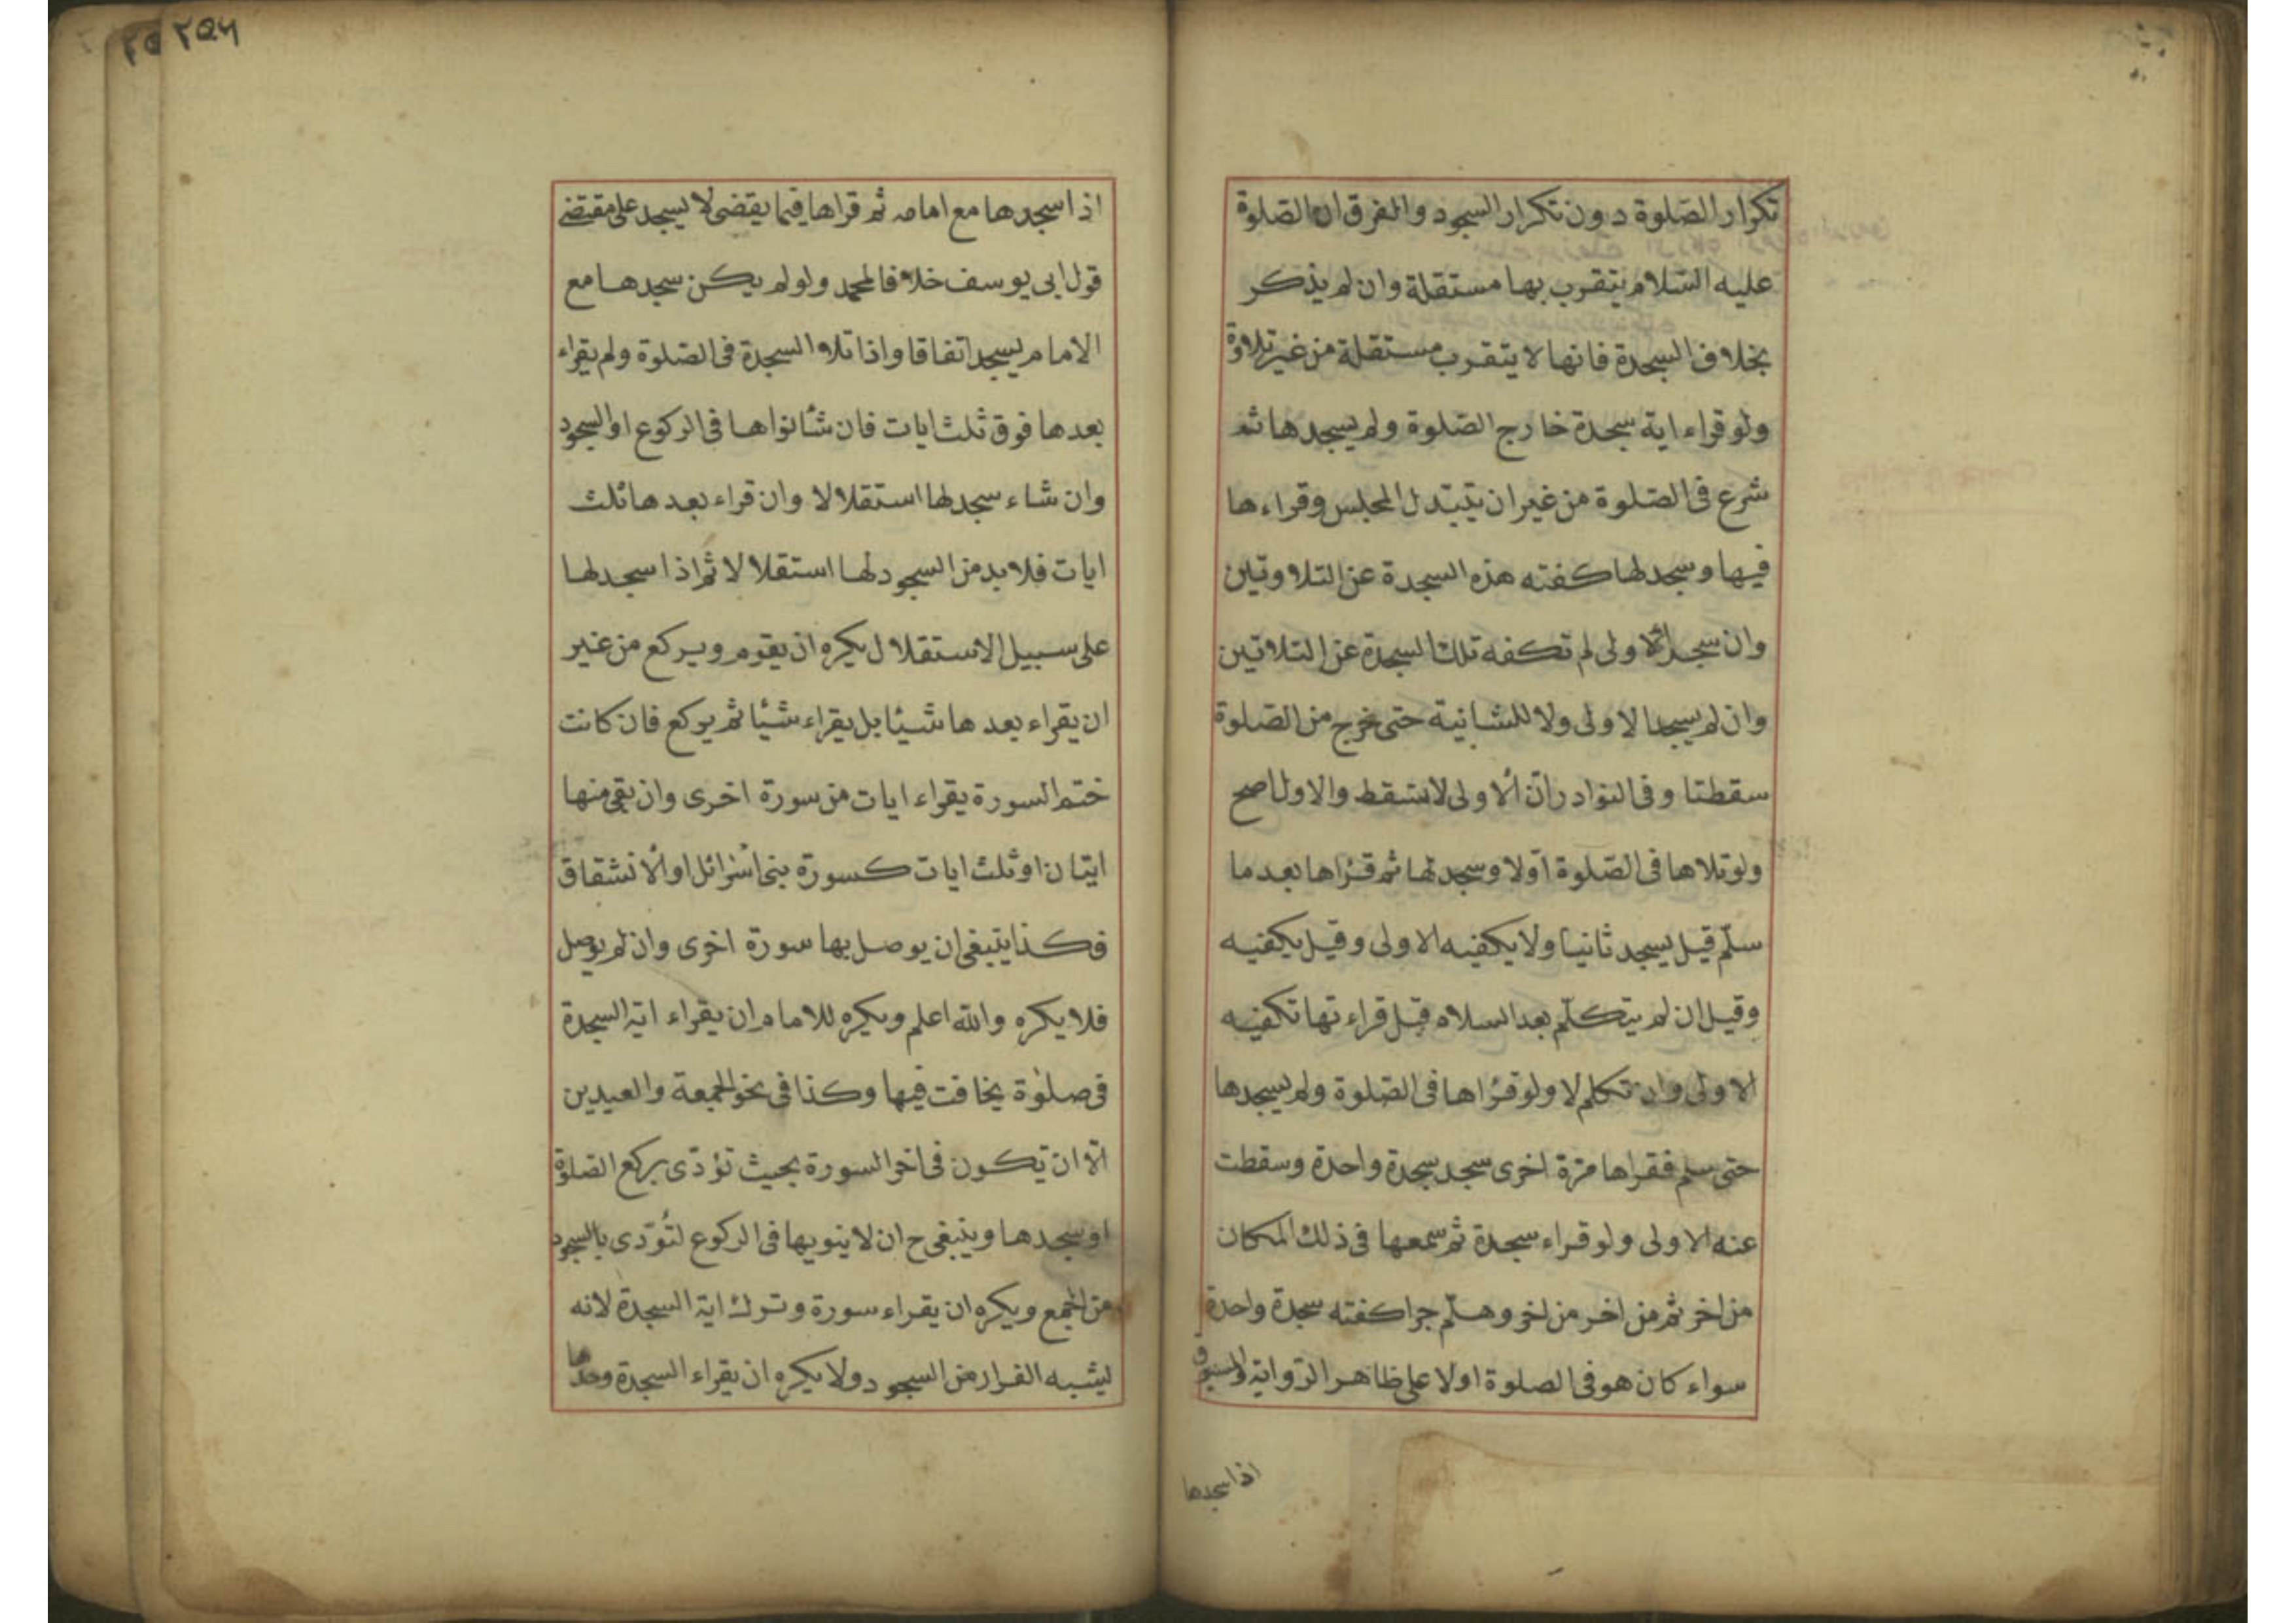 تكرار الصّلوة دون تكرار السجود والفرق ان الصّلوة
عليه السّلام يتقرب بها مستقلة وان لم يذكر
بخلاف السجدة فانها لا يتقرب مستقلة من غير تلاوة
ولو قراء اية سجدة خارج الصّلوة ولم يسجدها ثم
شرع فى الصّلوة من غير ان يتبدل المجلس وقراءها
فيها وسجد لها كفته هذه السجدة عن التلاوتين
وان سجد للاولى لم تكفه تلك السجدة عن التلاتين
وان لم يسجد الاولى ولا للشانية حتى خرج من الصّلوة
سقطتا وفى النوادر انّ الاولى لا تسقط والاول اصح
ولو تلاها فى الصّلوة اوّلا وسجد لها ثم قراها بعد ما
سلّم قيل يسجد ثانيا ولا يكفيه الاولى وقيل يكفيه
وقيل ان لم يتكلّم بعد السلام قبل قراءتها تكفيه
الاولى وان تكلم لا ولو قراها فى الصّلوة ولم يسجدها
حتى سلم فقراها مرّة اخرى سجد سجدة واحدة وسقطت
عنه الاولى ولو قراء سجدة ثم سمعها فى ذلك المكان
من اخر ثم من اخر من اخر وهلّم جرا كفته سجدة واحدة
سواء كان هو فى الصلوة اولا على ظاهر الرّواية والمسبوق
اذا سجدها
٢٥٦
اذا سجدها مع امامه ثم قراها فيما يقضى لا يسجد على مقتضى
قول ابى يوسف خلافا لمحمد ولو لم يكن سجدها مع
الامام يسجد اتفاقا واذا تلا السجدة فى الصّلوة ولم يقراء
بعدها فوق ثلث ايات فان شا نواها فى الركوع او السجود
وان شاء سجد لها استقلالا وان قراء بعدها ثلث
ايات فلا بد من السجود لها استقلالا ثم اذا سجد لها
على سبيل الاستقلال يكره ان يقوم ويركع من غير
ان يقراء بعدها شيئا بل يقراء شيئا ثم يركع فان كانت
ختم السورة يقراء ايات من سورة اخرى وان بقى منها
ايتان او ثلث ايات كسورة بنى اسرائل او الانشقاق
فكذا ينبغى ان يوصل بها سورة اخرى وان لم يوصل
فلا يكره والله اعلم ويكره للامام ان يقراء اية السجدة
فى صلوة يخافت فيها وكذا فى نحو الجمعة والعيدين
الّا ان تكون فى اخر السورة بحيث تؤدّى بركع الصّلوة
او سجدها وينبغى ح ان لا ينويها فى الركوع لتؤدّى بالسجود
من الجمع ويكره ان يقراء سورة وترك اية السجدة لانه
يشبه الفرار من السجود ولا يكره ان يقراء السجدة وحدها